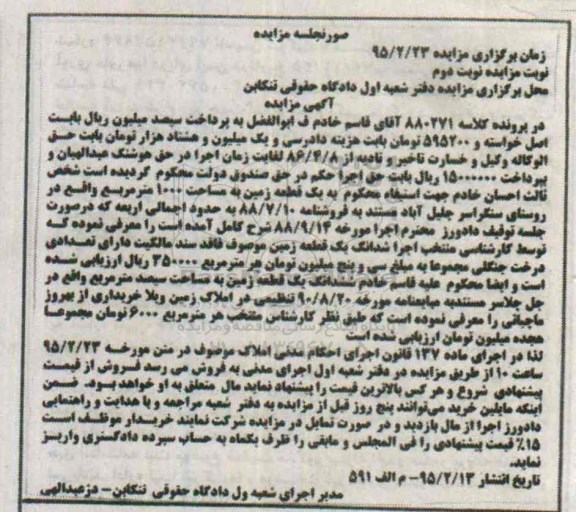 صورتجلسه مزایده
زمان برگزاری مزایده ۹۵/۲/۲۳
نوبت مزایده نوبت دوم
محل برگزاری مزایده دفتر شعبه اول دادگاه حقوقی تنکابن
آگهی مزایده
در پرونده کلاسه ۸۸۰۲۷۱ آقای قاسم خادم ف ابوالفضل به پرداخت سیصد میلیون ریال بابت
اصل خواسته و ۵۹۵۲۰۰ تومان بابت هزینه دادرسی و یک میلیون و هشتاد هزار تومان بابت حق
الوکاله وکیل و خسارت تاخیر و تادیه از ۸۶/۴/۸ لغایت زمان اجرا در حق هوشنگ عبدالهیان و
پرداخت ۱۵۰۰۰۰۰۰ ریال بابت حق اجرا حکم در حق صندوق دولت محکوم گردیده است شخص
ثالث احسان خادم جهت استیفاء محکوم به یک قطعه زمین به مساحت ۱۰۰۰ مترمربع واقع در
روستای سنگراسر جلیل آباد مستند به فروشنامه ۸۸/۷/۱۰ به حدود اجمالی اربعه که درصورت
جلسه توقیف دادورز محترم اجرا مورخه ۸۸/۹/۱۴ شرح کامل آمده است را معرفی نموده که
توسط کارشناسی منتخب اجرا ششدانگ یک قطعه زمین موصوف فاقد سند مالکیت دارای تعدادی
درخت جنگلی مجموعا به مبلغ سی و پنج میلیون تومان هر مترمربع ۳۵۰۰۰۰ ریال ارزیابی شده
است و ایضا محکوم علیه قاسم خادم ششدانگ یک قطعه زمین به مساحت سیصد مترمربع واقع در
جل جلاسر مستندبه مبایعنامه مورخه ۹۰/۸/۲۰ تنظیمی در املاک زمین ویلا خریداری از بهروز
ماچیانی را معرفی نموده است که طبق نظر کارشناس منتخب هر مترمربع ۶۰۰۰۰ تومان مجموعا
هجده میلیون تومان ارزیابی شده است
لذا در اجرای ماده ۱۳۷ قانون اجرای احکام مدنی املاک موصوف در متن مورخه ۹۵/۲/۲۳
ساعت ۱۰ از طریق مزایده در دفتر شعبه اول اجرای مدنی به فروش می رسد فروش از قیمت
پیشنهادی شروع و هر کس بالاترین قیمت را پیشنهاد نماید مال متعلق به او خواهد بود. ضمن
اینکه مایلین خرید می‌توانند پنج روز قبل از مزایده به دفتر شعبه مراجعه و با هدایت و راهنمایی
دادورز اجرا از مال بازدید و در صورت تمایل در مزایده شرکت نمایند خریدار موظف است
۱۵٪ قیمت پیشنهادی را فی المجلس و مابقی را ظرف یکماه به حساب سپرده دادگستری واریز
نماید.
تاریخ انتشار ۹۵/۲/۱۳– م الف ۵۹۱
مدیر اجرای شعبه ول دادگاه حقوقی تنکابن – دزعبدالهی